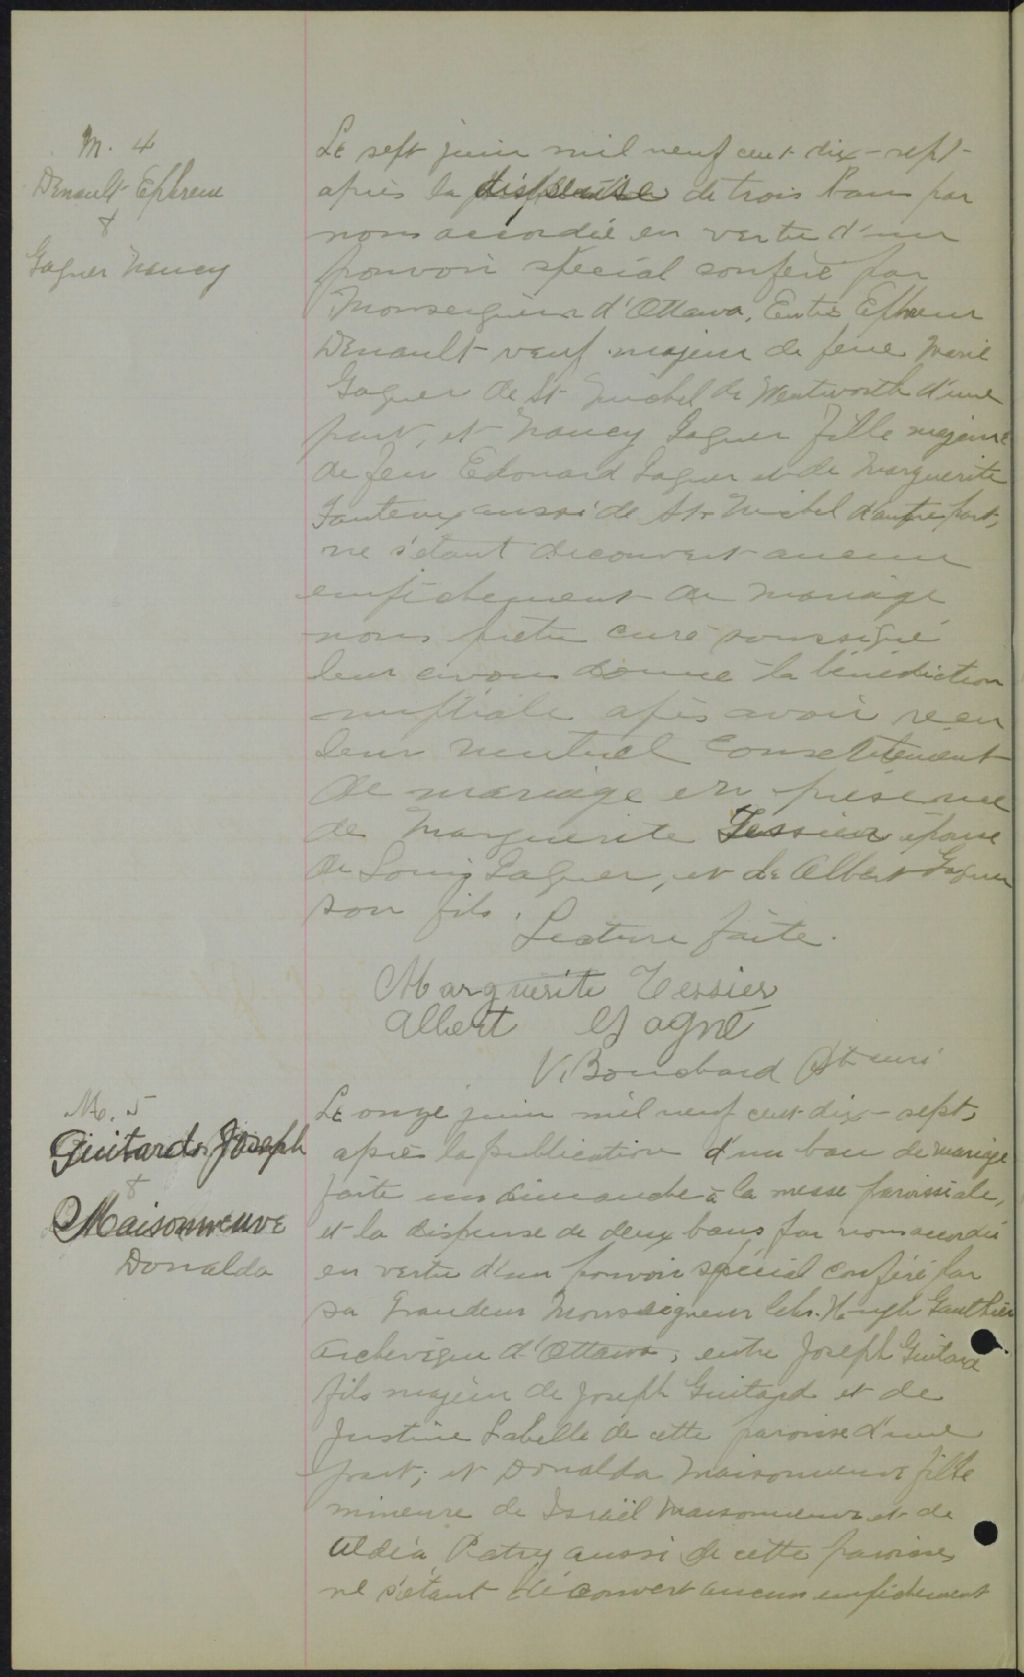 M. 4
Denault Ephrem
&
Gagner Nancy
Le sept juin mil neuf cent dix-sept
après la dispense de trois bans par
nous accordée en vertu d'un
pouvoir spécial conféré par
Monseigneur d'Ottawa, Entre Ephrem
Denault veuf majeur de feue Marie
Gagner de St Michel de Wentworth d'une
part, et Nancy Gagner fille majeure
de feu Edouard Gagner et de Marguerite
Fauteux aussi de St. Michel d'autre part,
ne s'étant decouvert aucun
empêchement de mariage
nous prêtre curé soussigné
leur avons donné la bénédiction
nuptiale après avoir reçu
leur mutuel consentement
de mariage en présence
de Marguerite Tessier épouse
de Louis Gagner, et de Albert Gagner
son fils.
Lecture faite.
Marguerite Tessier
Albert Gagné
V. Bouchard Ptre curé
M. 5
Guitard Joseph
&
Maisonneuve
Donalda
Le onze juin mil neuf cent dix-sept,
après la publication d'un ban de mariage
faite un dimanche à la messe paroissiale,
et la dispense de deux bans par nous accordée
en vertu d'un pouvoir spécial conféré par
sa Grandeur Monseigneur Chs. Hugh Gauthier
archevêque d'Ottawa, entre Joseph Guitard
fils majeur de Joseph Guitard et de
Justine Labelle de cette paroisse d'une
part; et Donalda Maisonneuve fille
mineure de Israël Maisonneuve et de
Aldéa Patry aussi de cette paroisse,
ne s'étant découvert aucun empêchement